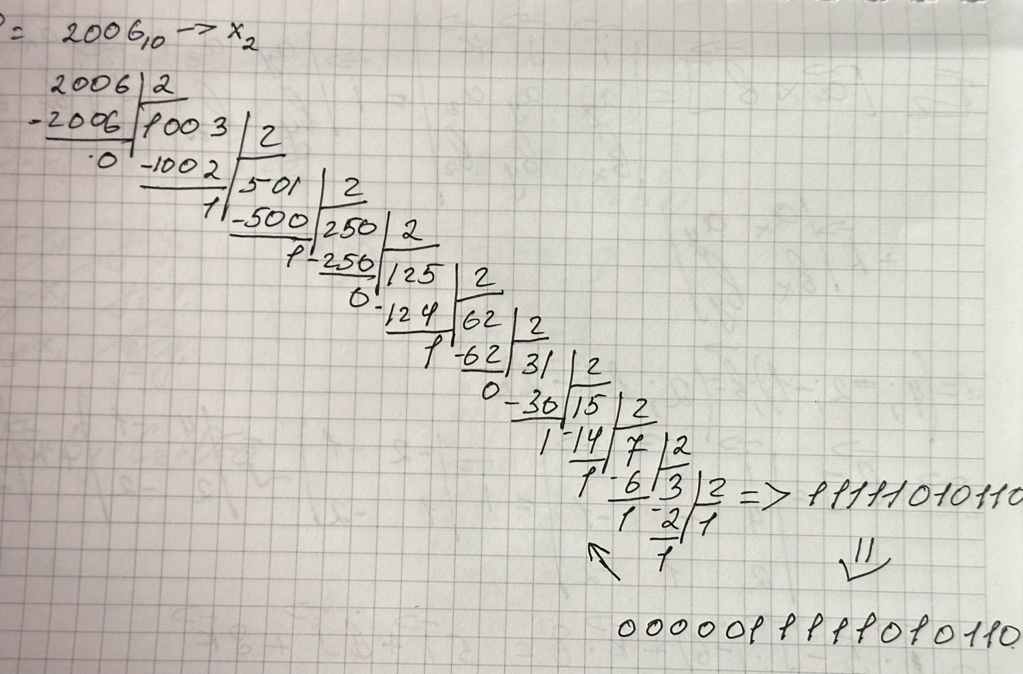 = 2006₁₀ → x₂
2006 | 2
-2006 | 1003 | 2
0 -1002 | 501 | 2
1 -500 | 250 | 2
1 -250 | 125 | 2
0 -124 | 62 | 2
1 -62 | 31 | 2
0 -30 | 15 | 2
1 -14 | 7 | 2
1 -6 | 3 | 2 => 11111010110
1 -2 | 1
1
0000011111010110